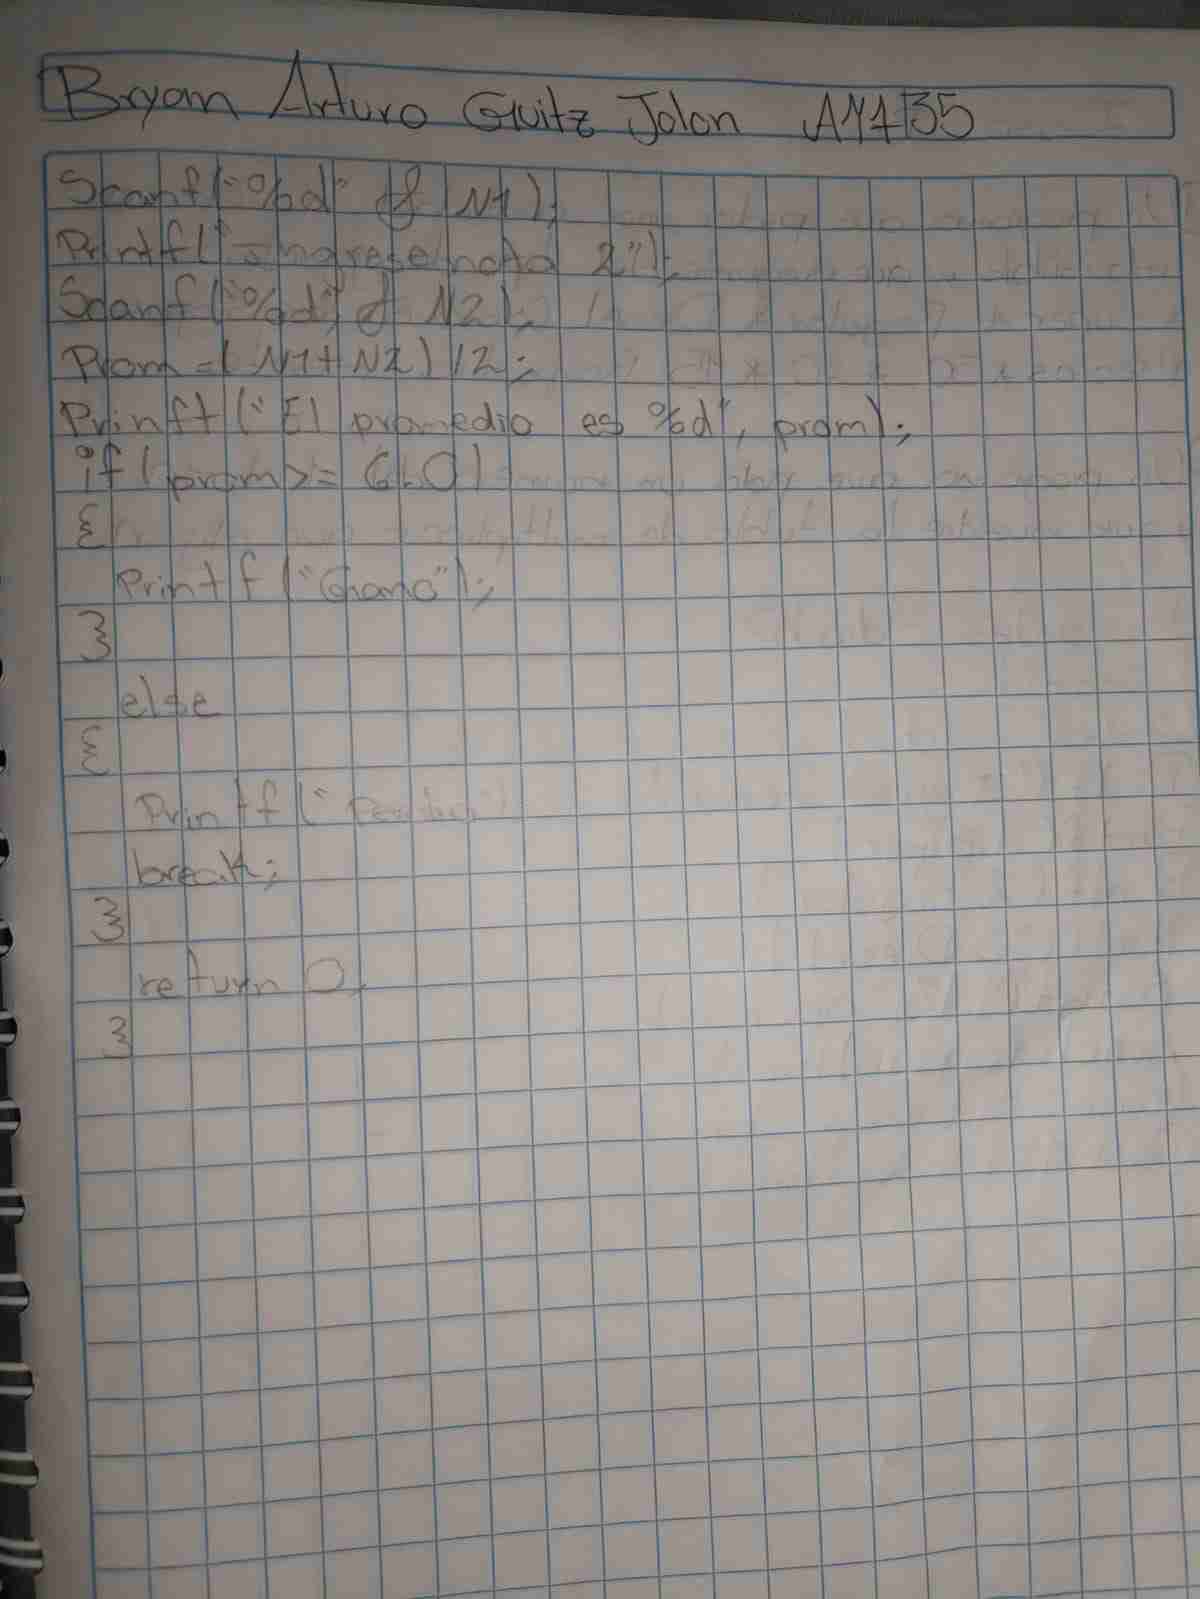 Bryam Arturo Guitz Jolon AM7135
Scanf("%d" & N1);
Printf("Ingrese nota 2");
Scanf("%d", & N2);
Prom = (N1+N2)/2;
Prinft("El promedio es %d", prom);
if(prom>= 61.0)
{
Printf("Ghano");
}
else
{
Printf("
break;
}
return 0;
}